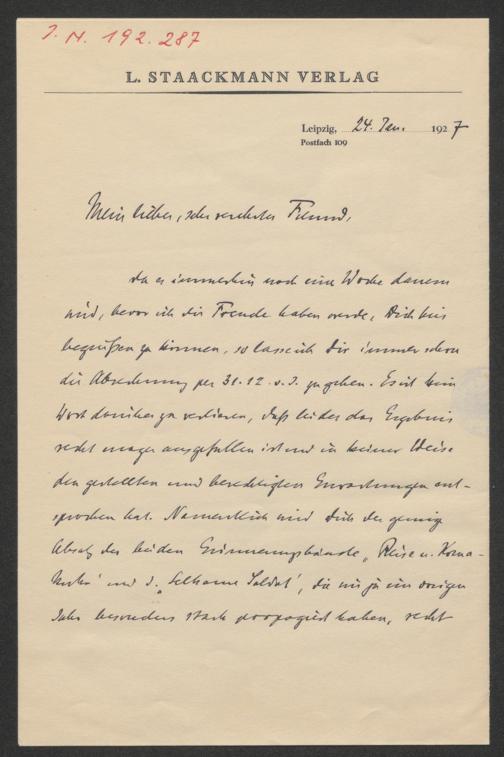 J. N. 192.287
L. STAACKMANN VERLAG
Leipzig, 24. Jan. 1927
Postfach 109
Mein lieber, sehr verehrter Freund,
da es immerhin noch eine Woche dauern
wird, bevor ich die Freude haben werde, Dich hier
begrüßen zu können, so lasse ich Dir immer schon
die Abrechnung per 31.12. v. J. zugehen. Es ist kein
Wort darüber zu verlieren, daß leider das Ergebnis
recht mager ausgefallen ist und in keiner Weise
den gestellten und berechtigten Erwartungen ent-
sprochen hat. Namentlich wird Dich der geringe
Absatz der beiden Erinnerungsbände, „Reise n. Koma-
" und d. „Seltsame Soldat", die wir ja im vorigen
Jahr besonders stark propagiert haben, recht